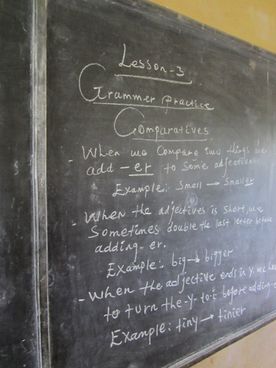 Lesson-3
Grammer practice
Comparatives
- When we compare two things we
add -er to some adjectives.
Example: Small → Smaller
- When the adjectives is short, we
Sometimes double the last letter before
adding -er.
Example:- big → bigger
- When the adjective ends in y. we have
to turn the -y- to i before adding -
Example: tiny → tinier